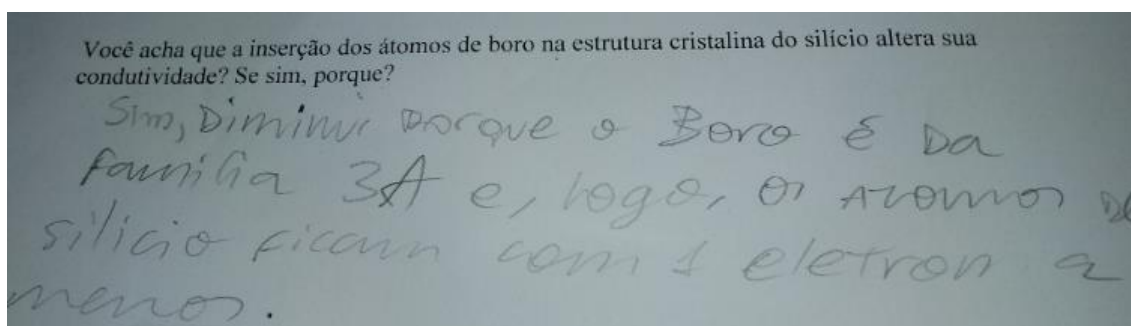 Você acha que a inserção dos átomos de boro na estrutura cristalina do silício altera sua
condutividade? Se sim, porque?
Sim, Diminui porque o Boro é Da
família 3A e, logo, os Atomos De
silício ficam com 1 eletron a
menos.